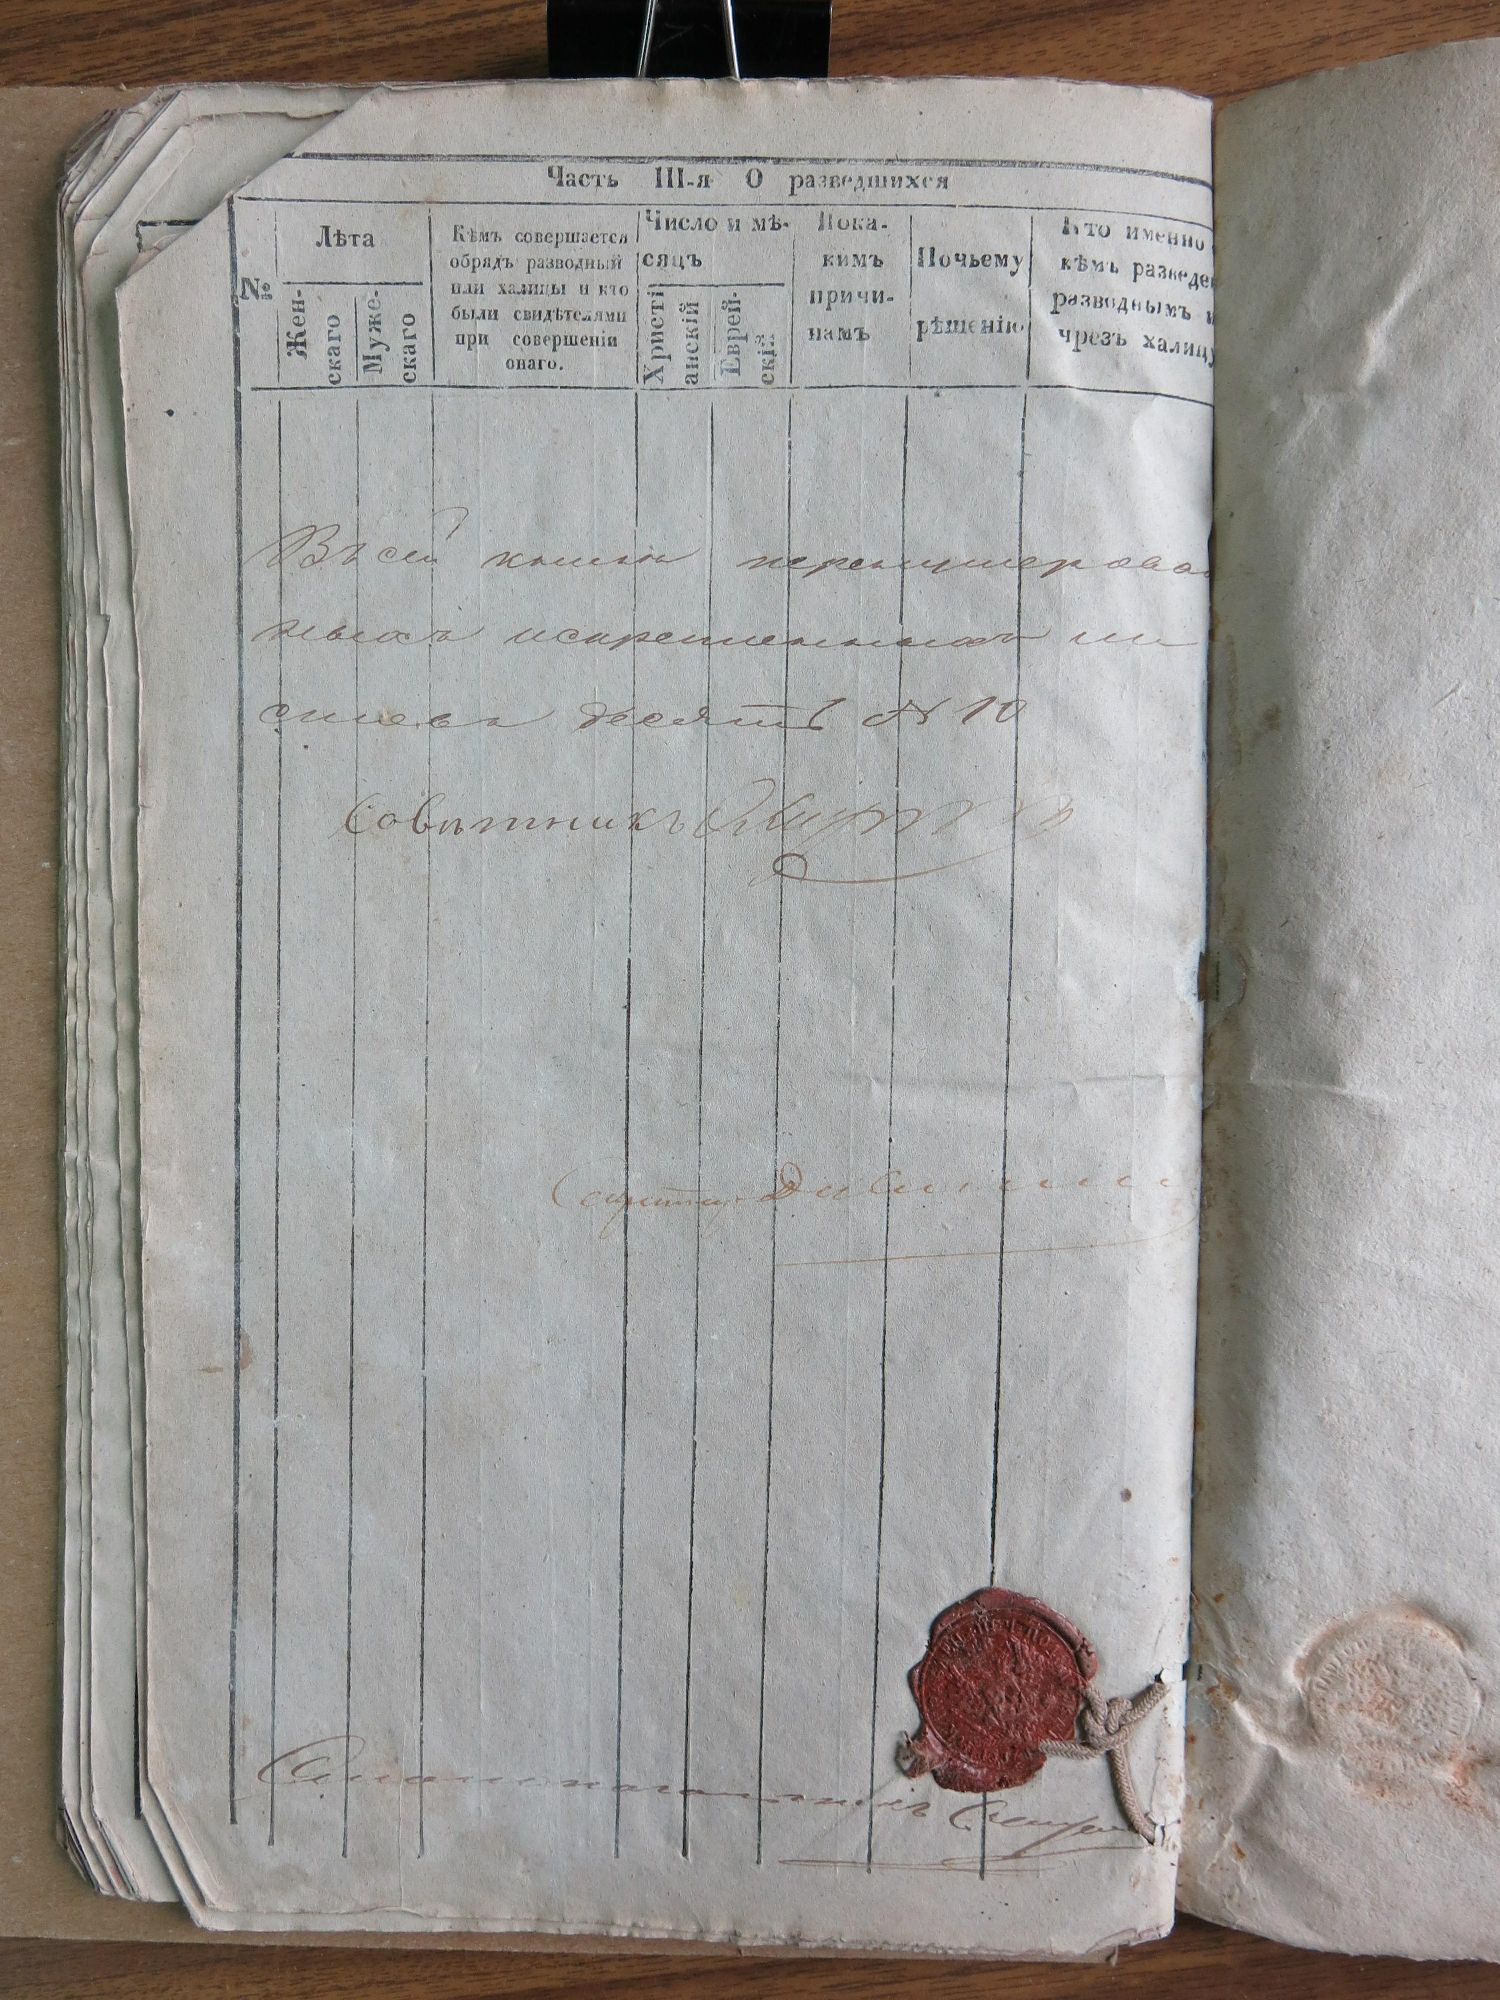 Часть III-я О разведшихся
№
Лѣта
Жен-
скаго
Муже-
скаго
Кѣмъ совершается
обрядъ разводный
или халицы и кто
были свидѣтелями
при совершеніи
онаго.
Число и мѣ-
сяцъ
Христі
анскій
Еврей-
скій
Пока-
кимъ
причи-
намъ
Почьему
рѣшенію
Кто именно
кѣмъ разведе
разводнымъ и
чрезъ халицу
Въ сей книгѣ перенумерован
ныхъ искрепленныхъ ли
стовъ десять № 10
Совѣтникъ